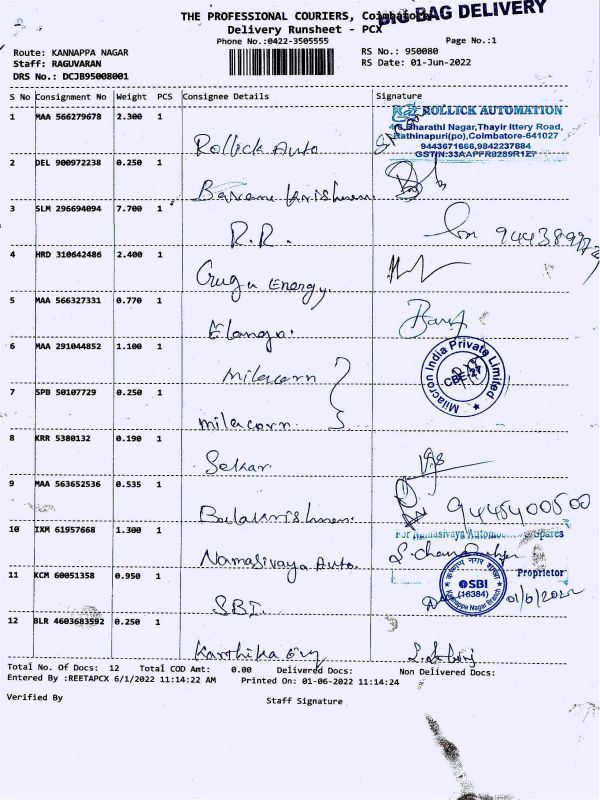 BIG BAG DELIVERY
THE PROFESSIONAL COURIERS, Coimbatore
Delivery Runsheet - PCX
Phone No.:0422-3505555
Page No.:1
Route: KANNAPPA NAGAR
RS No.: 950080
Staff: RAGUVARAN
RS Date: 01-Jun-2022
DRS No.: DCJB95008001
S No Consignment No Weight PCS Consignee Details Signature
1 MAA 566279678 2.300 1
ROLLICK AUTOMATION
Bharathi Nagar,Thayir Ittery Road,
Rathinapuri(po),Coimbatore-641027
9443671666,9842237884
GSTIN:33AAPFR8289R1Z7
Rollick Auto
2 DEL 900972238 0.250 1
3 SLM 296694094 7.700 1
R.R.
4 HRD 310642486 2.400 1
Energy
5 MAA 566327331 0.770 1
Elango.
6 MAA 291044852 1.100 1
Milacron India Private Limited
CBE-27
milacorn
7 SPB 50107729 0.250 1
milacorn
8 KRR 5380132 0.190 1
Sekar
9 MAA 563652536 0.535 1
9445400500
Balakrishnan.
10 IXM 61957668 1.300 1
For Namasivaya Spares
Namasivaya Auto.
Proprietor
11 KCM 60051358 0.950 1
SBI
(16384)
Kannappa Nagar Branch
SBI.
01/6/2022
12 BLR 4603683592 0.250 1
Karthika
Total No. Of Docs: 12 Total COD Amt: 0.00 Delivered Docs: Non Delivered Docs:
Entered By :REETAPCX 6/1/2022 11:14:22 AM Printed On: 01-06-2022 11:14:24
Verified By
Staff Signature